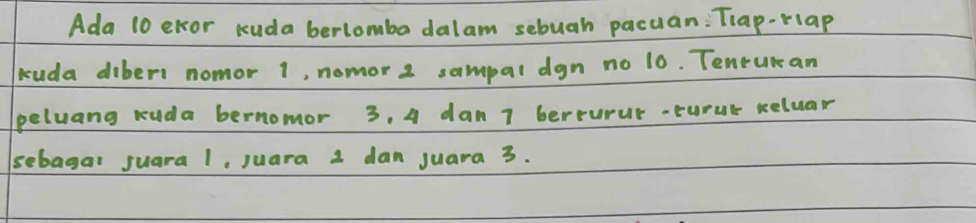 Ada 10 ekor kuda berlomba dalam sebuah pacuan. Tiap-tiap
kuda diberi nomor 1, nomor 2 sampai dgn no 10. Tentukan
peluang kuda bernomor 3, 4 dan 7 berturut-turut keluar
sebagai juara 1, juara 2 dan juara 3.